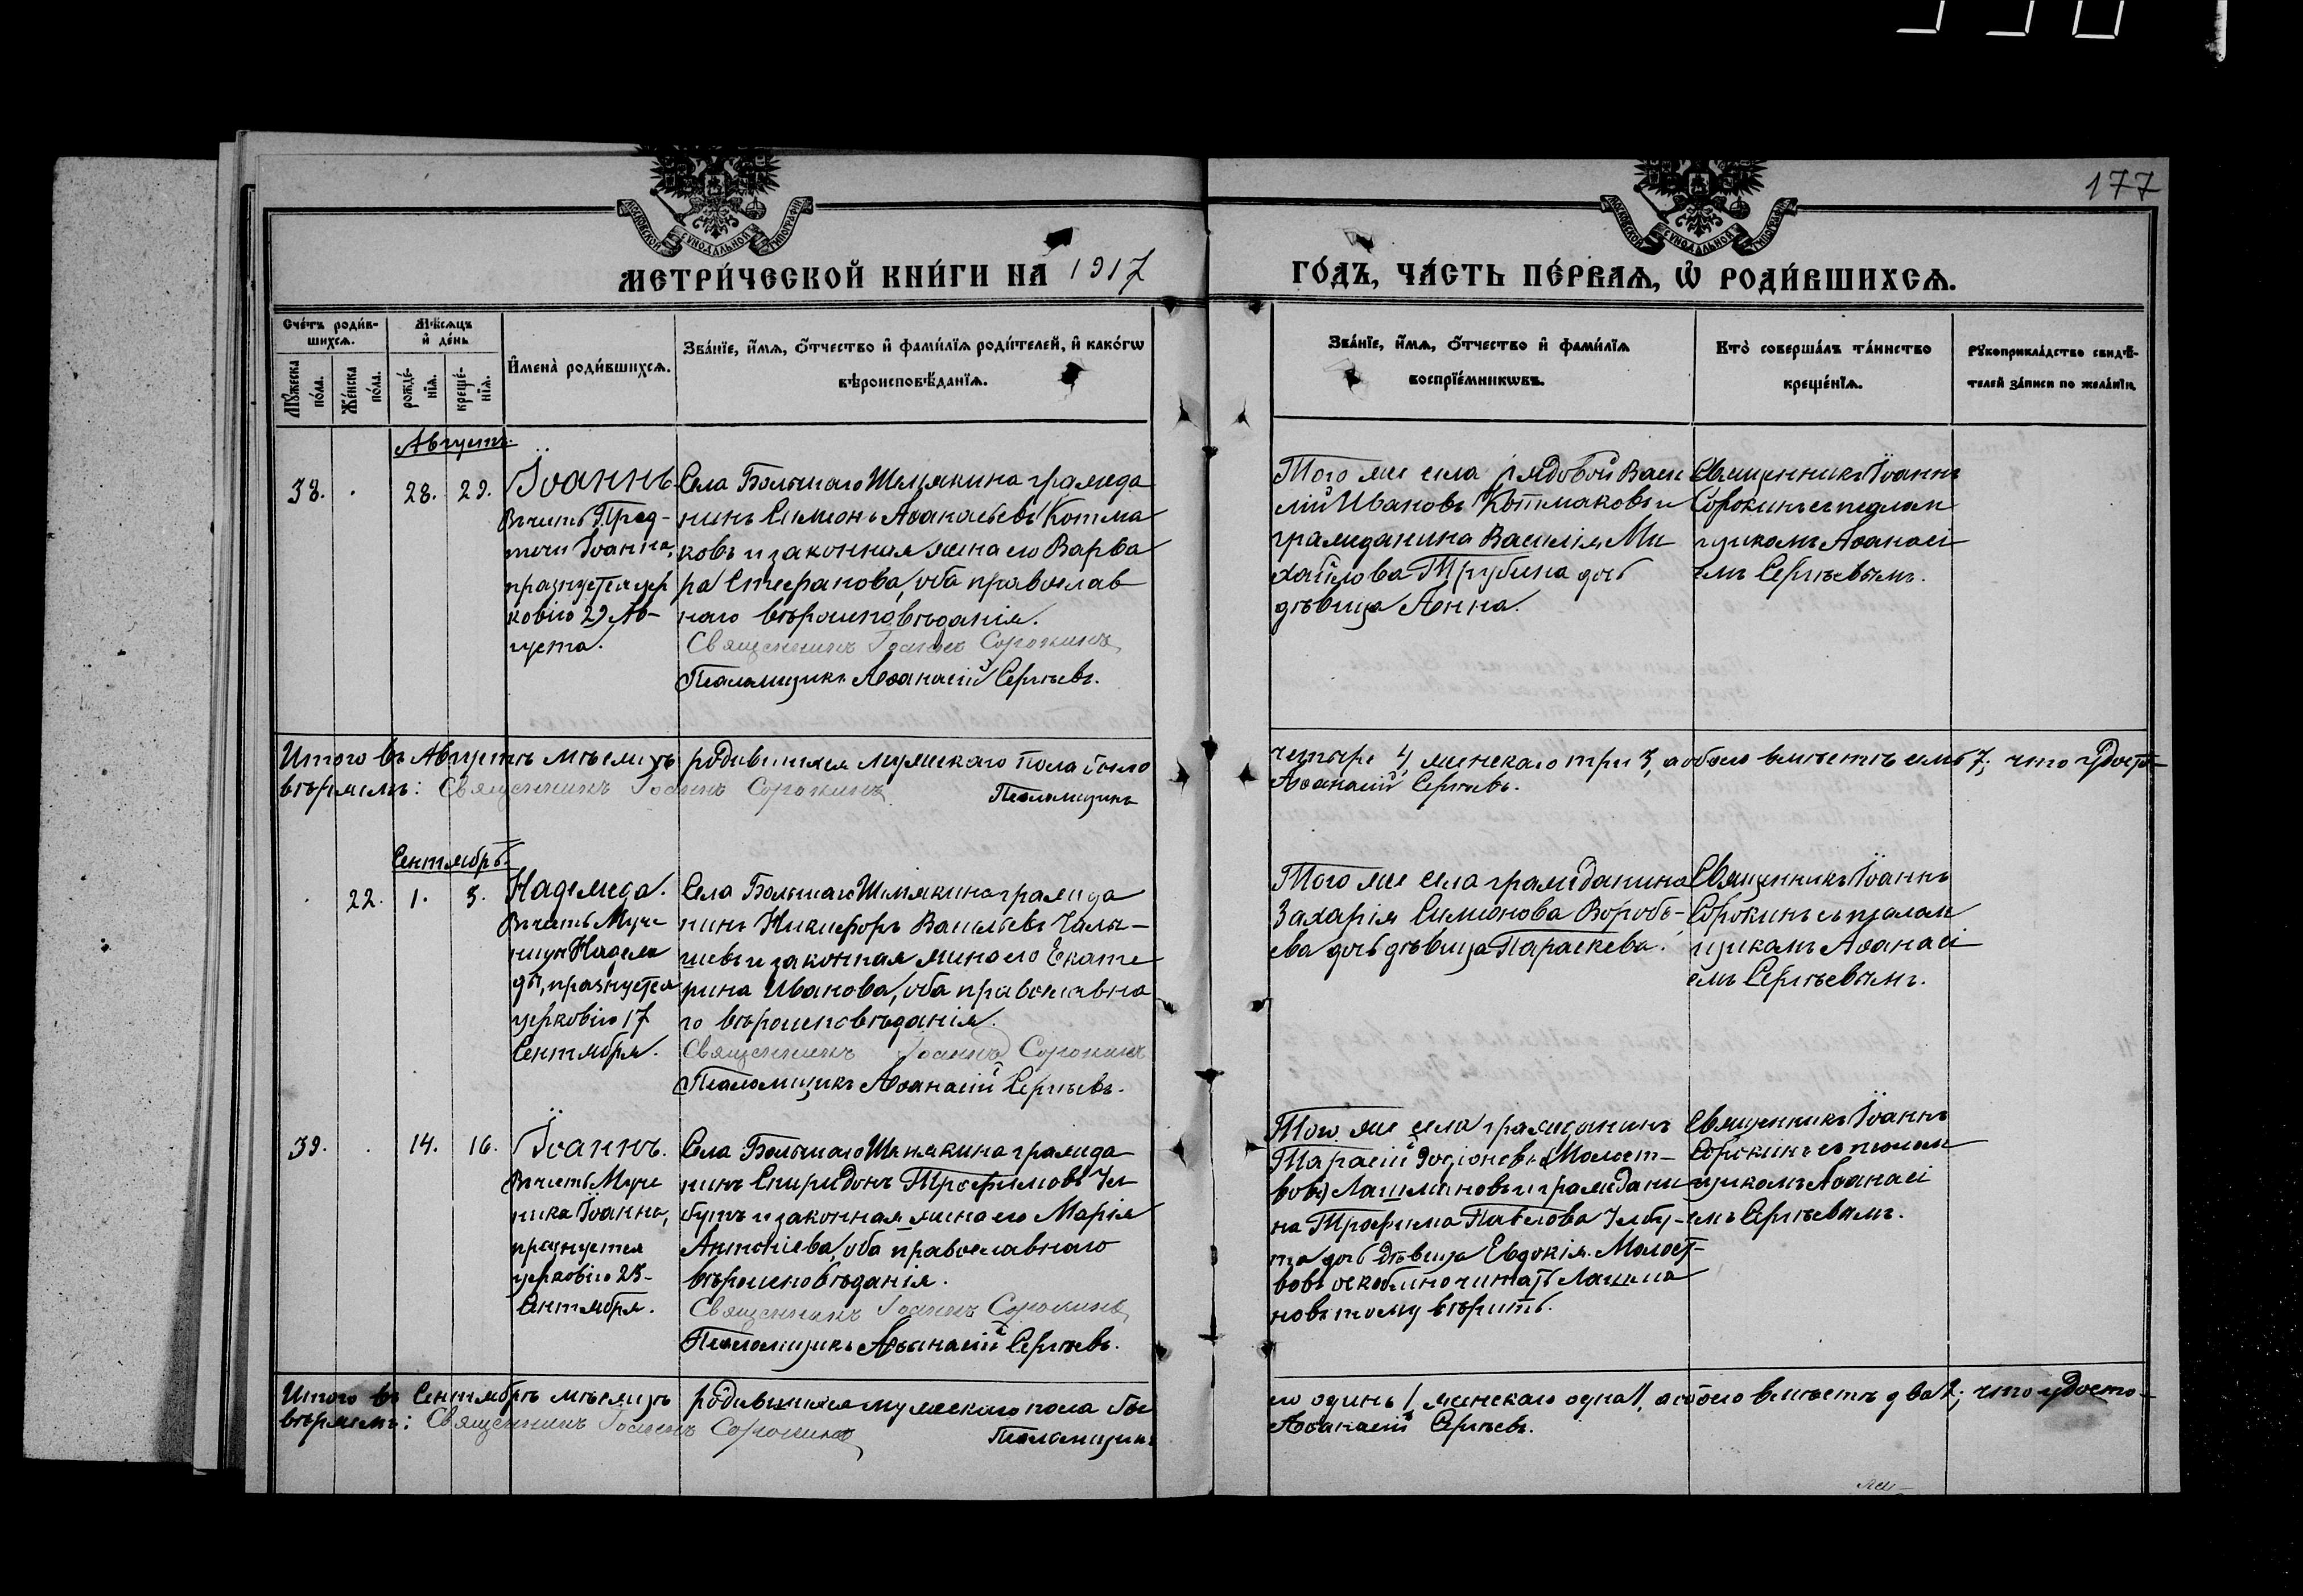 177
МЕТРИ́ЧЕСКОЙ КНИ́ГИ НА 1917
ГО́ДЪ, ЧА́СТЬ ПЕ́РВАѦ, Ѡ҆ РОДИ́ВШИХСѦ.
Сче́тъ роди́в-
шихсѧ.
Мѣ́сѧцъ
и҆ де́нь
Мꙋ́жеска
по́ла.
Же́нска
по́ла.
рожде́-
нїѧ.
креще́-
нїѧ.
И҆мена̀ роди́вшихсѧ.
Зва́нїе, и҆́мѧ, ѻ҆́тчество и҆ фами́лїѧ роди́телей, и҆ како́гѡ
вѣроисповѣ́данїѧ.
Зва́нїе, и҆́мѧ, ѻ҆́тчество и҆ фами́лїѧ
воспрїе́мникѡвъ.
Кто̀ соверша́лъ та́инство
креще́нїѧ.
Рꙋкоприкла́дство свидѣ́-
телей за́писи по жела́нїю.
Августъ.
38.
28. 29.
Іоаннъ
Въ честь Пред-
течи Іоанна,
празнуется цер
ковію 29 Ав-
густа.
Села Большаго Шемякина гражда
нинъ Симеонъ Аѳанасьевъ Котма
ковъ и законная жена его Варва
ра Стефанова, оба православ
наго вѣроисповѣданія.
Священникъ Іоаннъ Сорокинъ
Псаломщикъ Аѳанасій Сергѣевъ.
Того же села рядовой Васи
лій Ивановъ Котмаковъ и
гражданина Василія Ми
хайлова Трубина дочь
дѣвица Анна.
Священникъ Іоаннъ
Сорокинъ съ псалом
щикомъ Аѳанасі
емъ Сергѣевымъ.
Итого въ Августѣ мѣсяцѣ родившихся мужескаго пола было
четыре 4, женскаго три 3, а обоего вмѣстѣ семь 7; что удосто-
вѣряемъ: Священникъ Іоаннъ Сорокинъ Псаломщикъ
Аѳанасій Сергѣевъ.
Сентябрь.
22.
1. 3.
Надежда.
Въ честь Муче
ницы Надеж
ды, празнуется
церковію 17
Сентября.
Села Большаго Шемякина гражда
нинъ Никифоръ Васильевъ Чалы-
шевъ и законная жена его Екате
рина Иванова, оба православна
го вѣроисповѣданія.
Священникъ Іоаннъ Сорокинъ
Псаломщикъ Аѳанасій Сергѣевъ.
Того же села гражданина
Захарія Симеонова Воробь-
ева дочь дѣвица Параскева.
Священникъ Іоаннъ
Сорокинъ съ псалом
щикомъ Аѳанасі
емъ Сергѣевымъ.
39.
14. 16.
Іоаннъ.
Въ честь Муче
ника Іоанна,
празнуется
церковію 23-
Сентября.
Села Большаго Шемякина гражда
нинъ Спиридонъ Трофимовъ
и законная жена его Марія
Антоніева, оба православнаго
вѣроисповѣданія.
Священникъ Іоаннъ Сорокинъ
Псаломщикъ Аѳанасій Сергѣевъ.
Того же села гражданинъ
Тарасій (Молост-
вовъ) Лашмановъ и граждани
на Трофима Павлова
дочь дѣвица Евдокія. Молост-
вовъ оскоблино читать Лашма
новъ тому вѣрить.
Священникъ Іоаннъ
Сорокинъ съ псалом
щикомъ Аѳанасі
емъ Сергѣевымъ.
Итого въ Сентябрѣ мѣсяцѣ родившихся мужескаго пола бы
ло одинъ 1, женскаго одна 1, а обоего вмѣстѣ два 2; что удосто-
вѣряемъ: Священникъ Іоаннъ Сорокинъ Псаломщикъ
Аѳанасій Сергѣевъ.